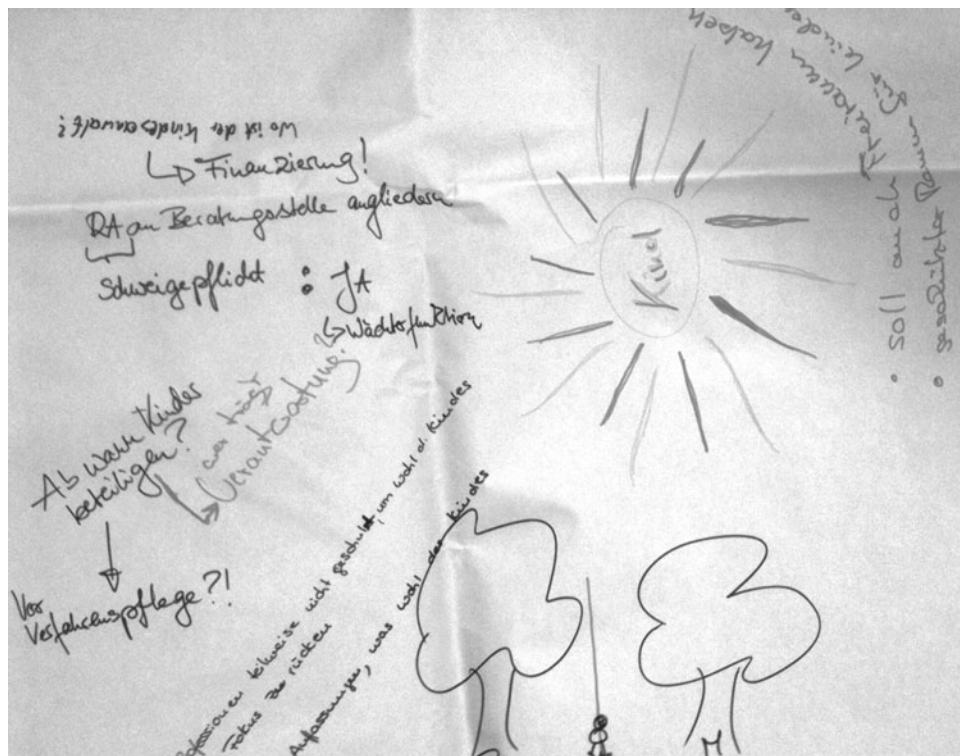 Wo ist der Kindesanwalt?
↳ Finanzierung!
RA an Beratungsstelle angliedern
Schweigepflicht : JA
↳ Wächterfunktion
Ab wann Kinder
beteiligen?
wer trägt
Verantwortung?
Vor
Verfahrenspflege?!
teilweise nicht geschult, um wohl d. Kindes
Fokus zu rücken
Auffassungen, was wohl des Kindes
Kind
• soll auch Freiraum haben
• geschützter Rahmen für Kinder
M